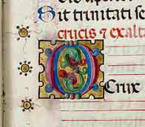 Sit trinitati se
crucis ⁊ exalt
O Crux